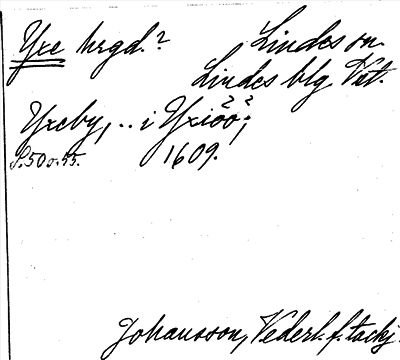 Yxe hrgd.?
Lindes sn.
Lindes blg Vät.
Yxeby, .. i Yxioo;
? ?
S. 50 o. 55. 1609.
Johansson, Vederl. f. tackj.